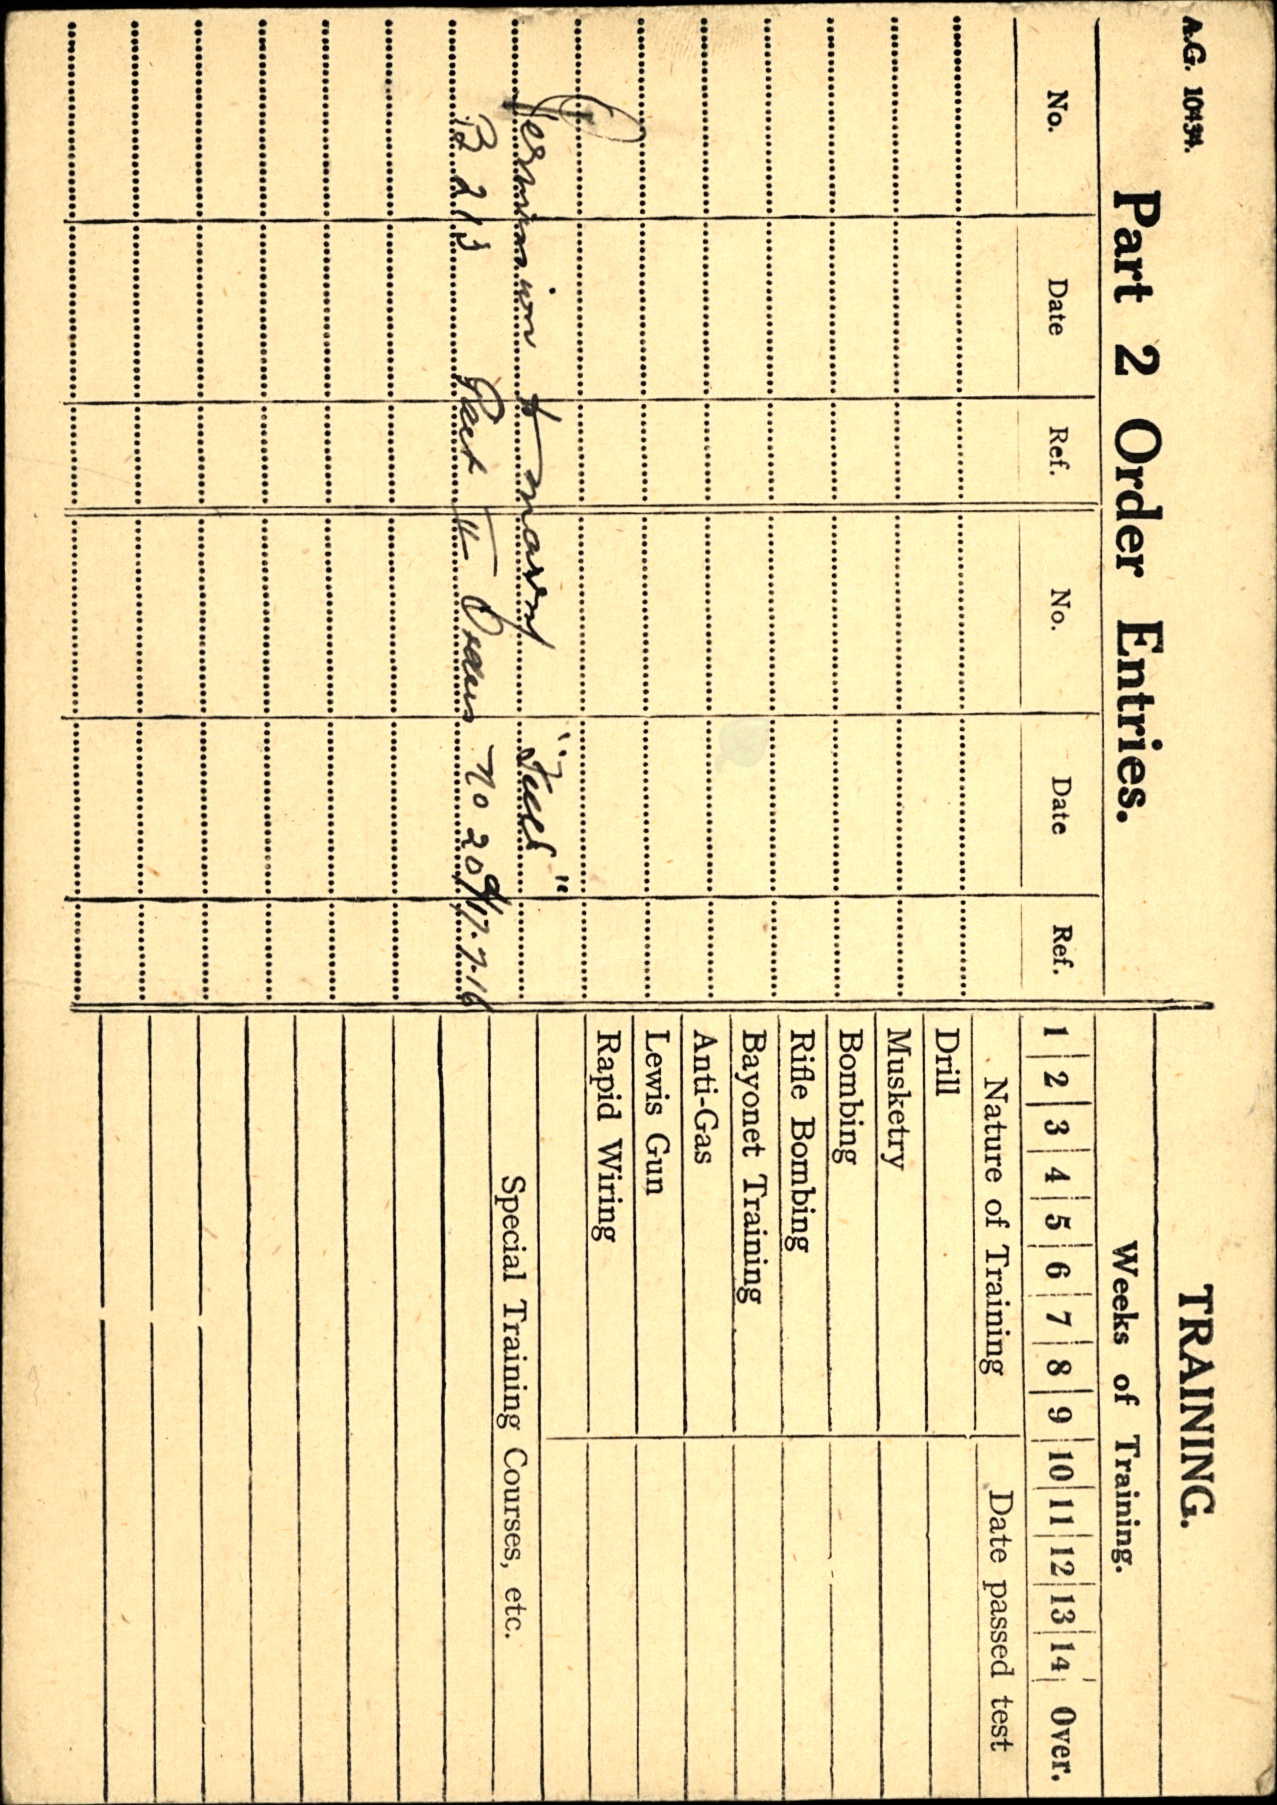 A.G. 10434.
Part 2 Order Entries.
No. Date Ref. No. Date Ref.
Permission to marry
B 213 Part II Orders No 209/17.7.16
TRAINING.
Weeks of Training.
1 2 3 4 5 6 7 8 9 10 11 12 13 14 Over.
Nature of Training Date passed test
Drill
Musketry
Bombing
Rifle Bombing
Bayonet Training
Anti-Gas
Lewis Gun
Rapid Wiring
Special Training Courses, etc.